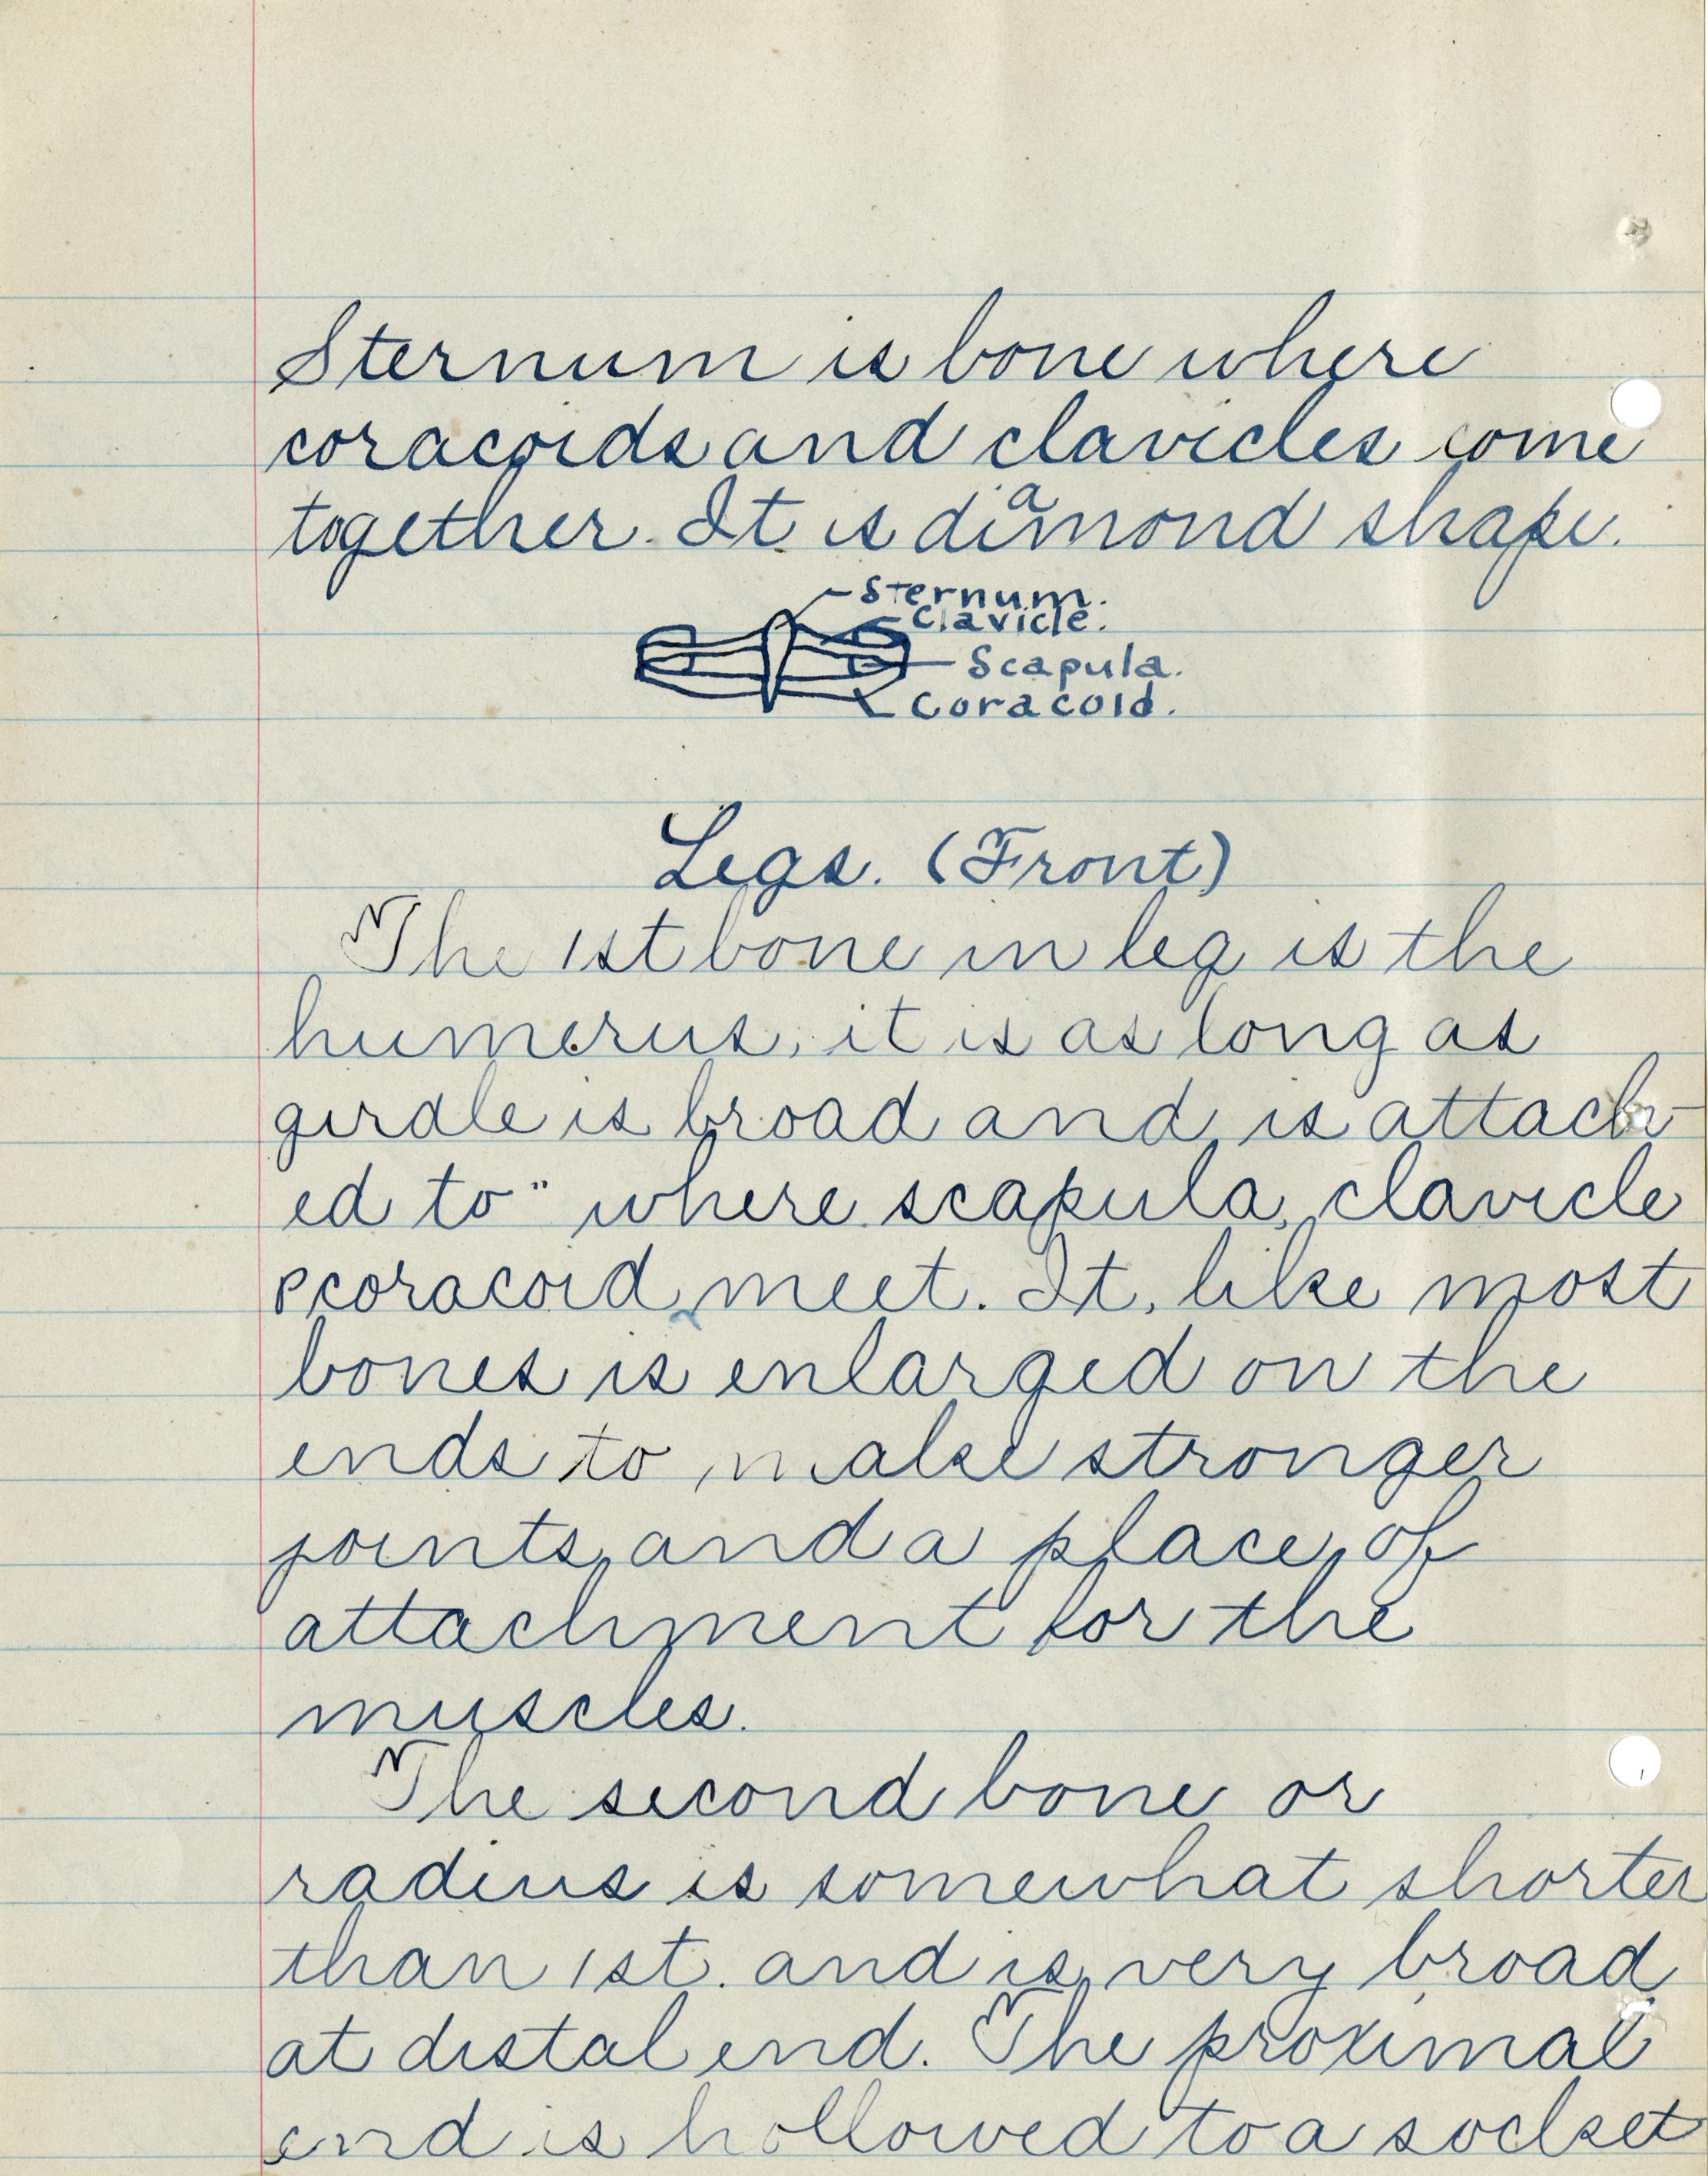 Sternum is bone where
coracoids and clavicles come
together. It is diamond shape.
Sternum.
Clavicle.
Scapula.
Coracoid.
Legs. (Front)
The 1st bone in leg is the
humerus; it is as long as
girdle is broad and is attach-
ed to " where scapula, clavicle
& coracoid meet. It, like most
bones is enlarged on the
ends to make stronger
joints and a place of
attachment for the
muscles.
The second bone or
radius is somewhat shorter
than 1st. and is very broad
at distal end. The proximal
end is hollowed to a socket